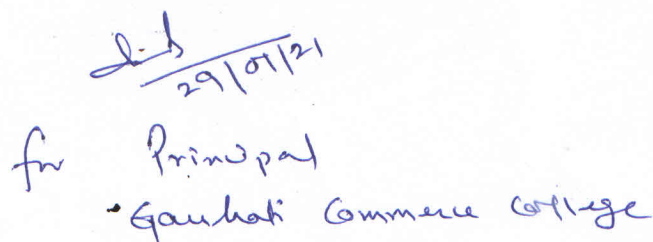 29/01/21
for Principal
Gauhati Commerce College